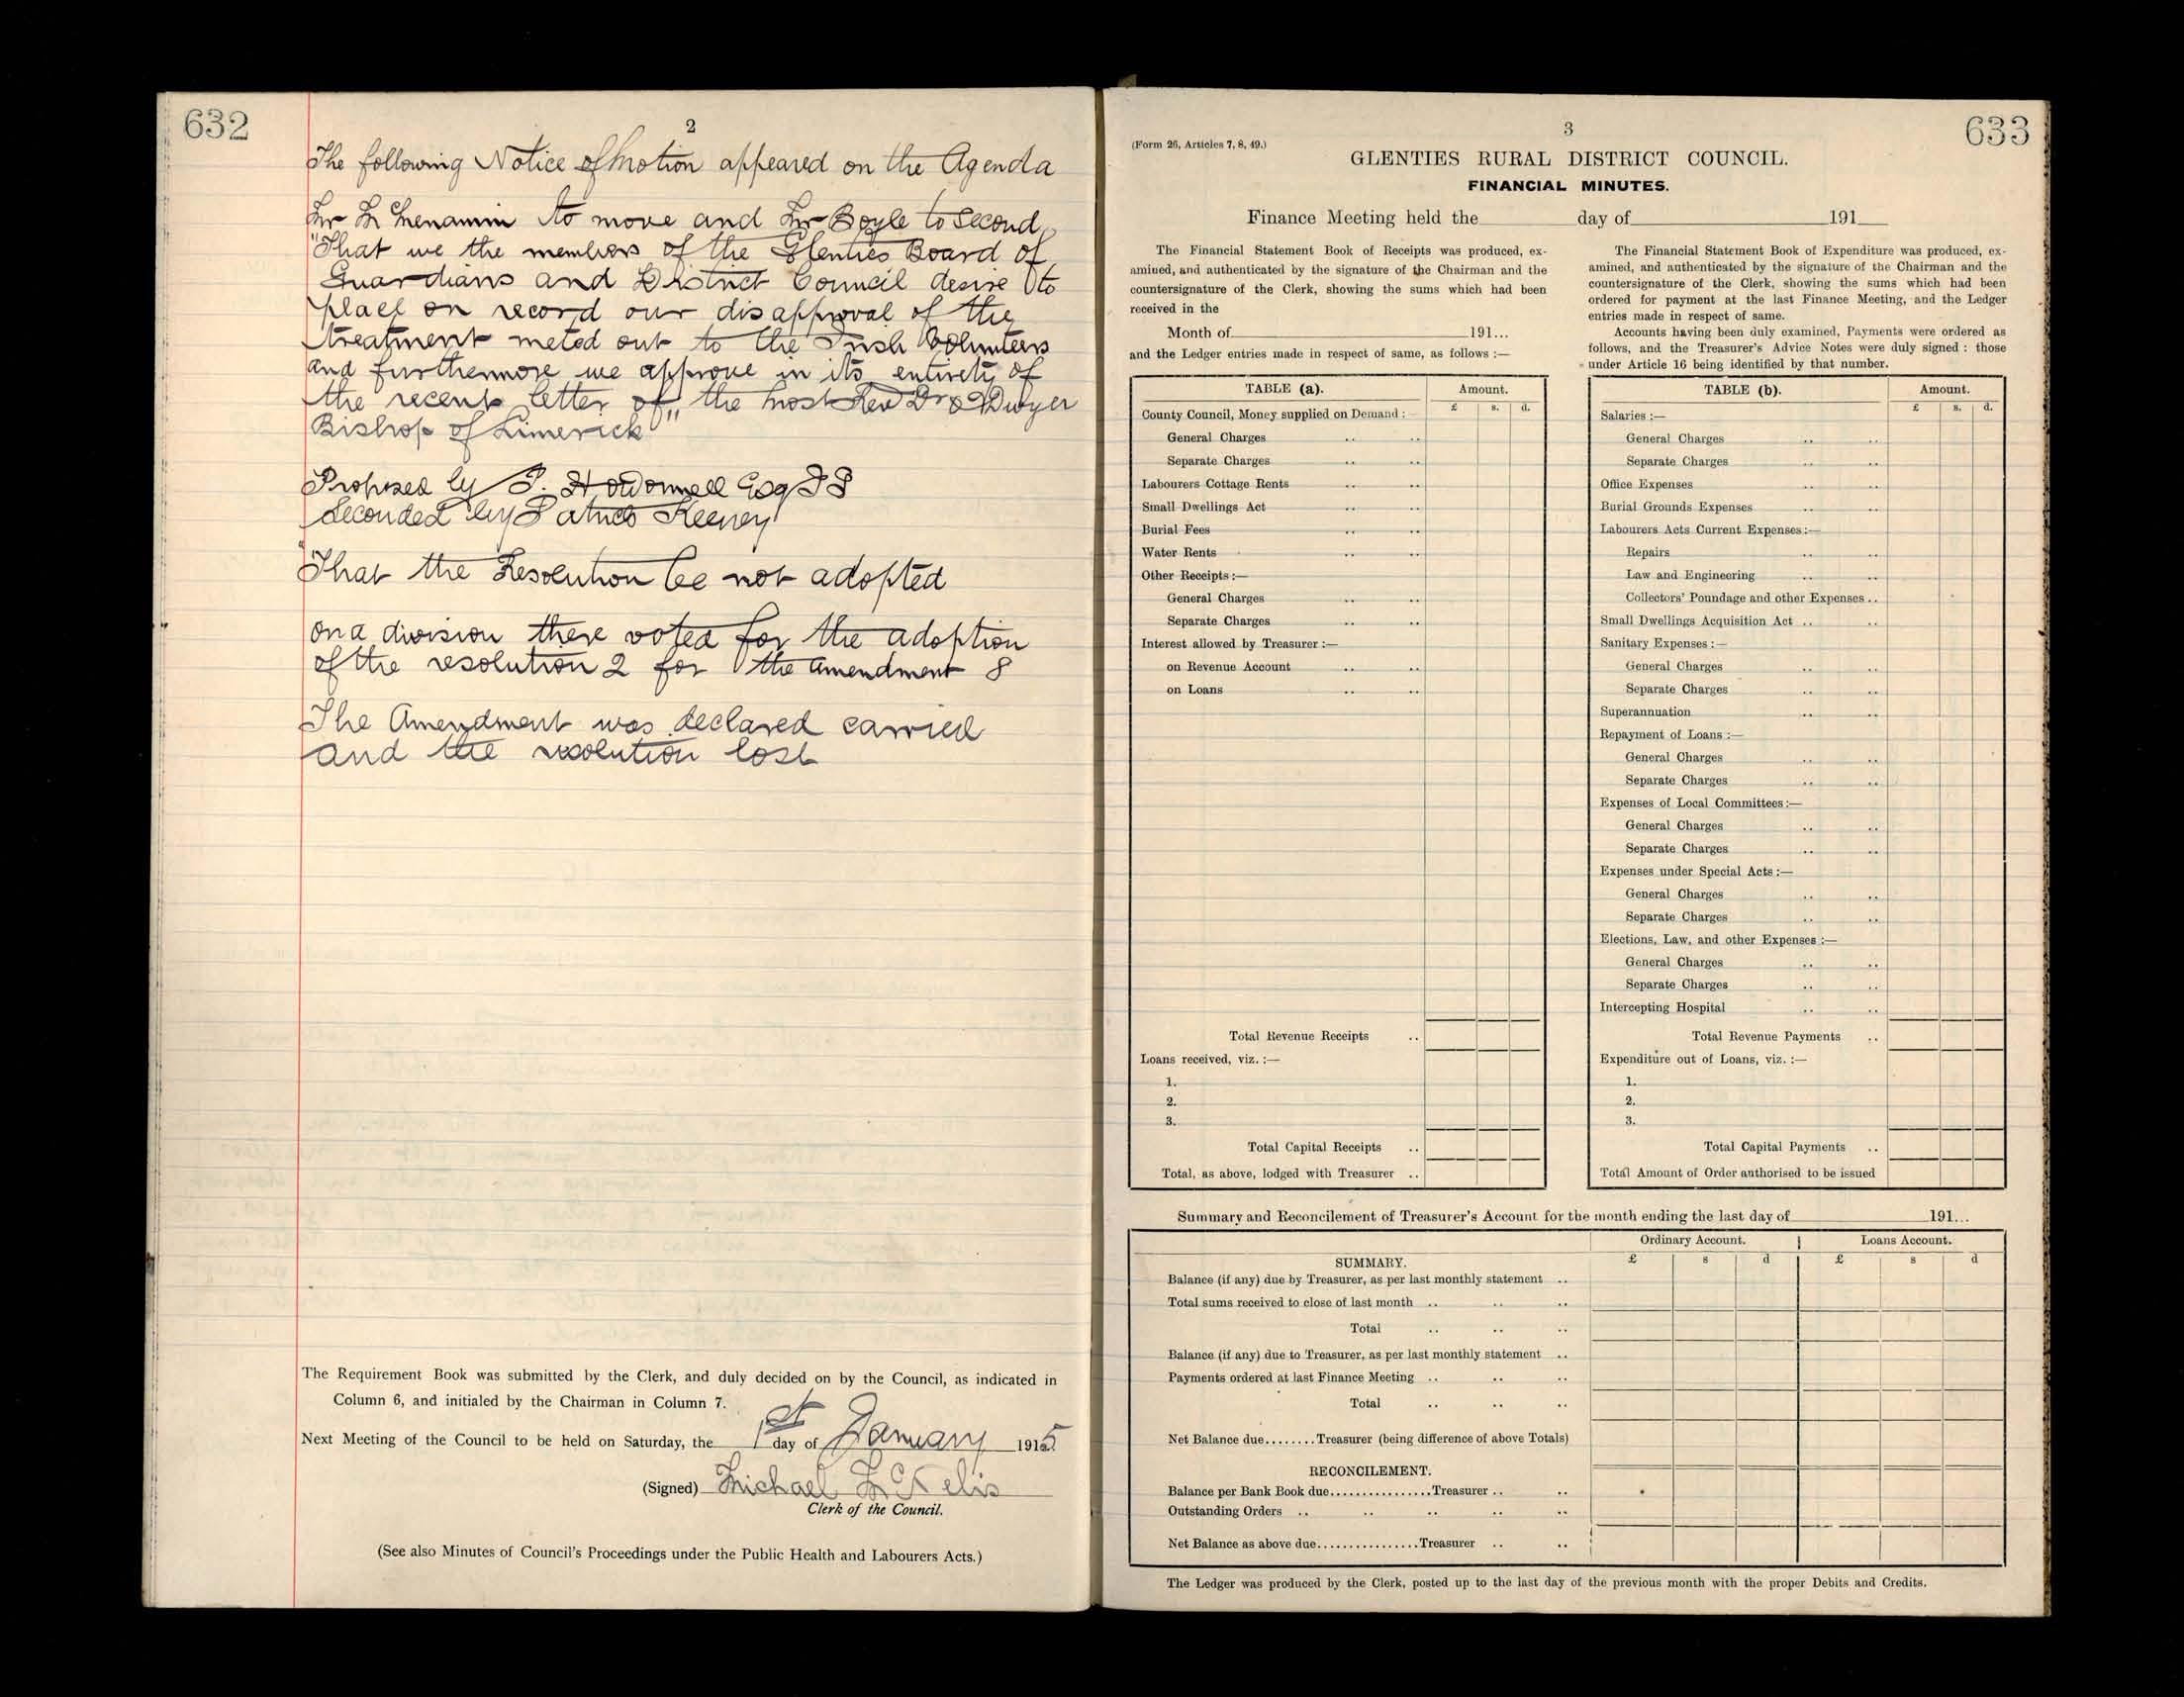 632
2
The following Notice of Motion appeared on the Agenda
Mr McMenamin to move and Mr Boyle to second
"That we the members of the Glenties Board of
Guardians and District Council desire to
place on record our disapproval of the
treatment meted out to the Irish Volunteers
and furthermore we approve in its entirety of
the recent letter of the Most Rev Dr O'Dwyer
Bishop of Limerick"
Proposed by P. H. O'Donnell Esq JP
Seconded by Patrick Keeney
"That the Resolution be not adopted
on a division there voted for the adoption
of the resolution 2 for the amendment 8
The Amendment was declared carried
and the resolution lost
The Requirement Book was submitted by the Clerk, and duly decided on by the Council, as indicated in
Column 6, and initialed by the Chairman in Column 7.
Next Meeting of the Council to be held on Saturday, the 1st day of January 1915
(Signed) Michael McNelis
Clerk of the Council.
(See also Minutes of Council's Proceedings under the Public Health and Labourers Acts.)
3
633
(Form 26, Articles 7, 8, 49.)
GLENTIES RURAL DISTRICT COUNCIL.
FINANCIAL MINUTES.
Finance Meeting held the day of 191
The Financial Statement Book of Receipts was produced, ex-
amined, and authenticated by the signature of the Chairman and the
countersignature of the Clerk, showing the sums which had been
received in the
Month of 191...
and the Ledger entries made in respect of same, as follows :—
TABLE (a). Amount.
£ s. d.
County Council, Money supplied on Demand :
General Charges .. ..
Separate Charges .. ..
Labourers Cottage Rents .. ..
Small Dwellings Act .. ..
Burial Fees .. ..
Water Rents .. ..
Other Receipts :—
General Charges .. ..
Separate Charges .. ..
Interest allowed by Treasurer :—
on Revenue Account .. ..
on Loans .. ..
Total Revenue Receipts ..
Loans received, viz. :—
1.
2.
3.
Total Capital Receipts ..
Total, as above, lodged with Treasurer ..
The Financial Statement Book of Expenditure was produced, ex-
amined, and authenticated by the signature of the Chairman and the
countersignature of the Clerk, showing the sums which had been
ordered for payment at the last Finance Meeting, and the Ledger
entries made in respect of same.
Accounts having been duly examined, Payments were ordered as
follows, and the Treasurer's Advice Notes were duly signed : those
under Article 16 being identified by that number.
TABLE (b). Amount.
£ s. d.
Salaries :—
General Charges .. ..
Separate Charges .. ..
Office Expenses .. ..
Burial Grounds Expenses .. ..
Labourers Acts Current Expenses :—
Repairs .. ..
Law and Engineering .. ..
Collectors' Poundage and other Expenses ..
Small Dwellings Acquisition Act .. ..
Sanitary Expenses :—
General Charges .. ..
Separate Charges .. ..
Superannuation .. ..
Repayment of Loans :—
General Charges .. ..
Separate Charges .. ..
Expenses of Local Committees :—
General Charges .. ..
Separate Charges .. ..
Expenses under Special Acts :—
General Charges .. ..
Separate Charges .. ..
Elections, Law, and other Expenses :—
General Charges .. ..
Separate Charges .. ..
Intercepting Hospital .. ..
Total Revenue Payments ..
Expenditure out of Loans, viz. :—
1.
2.
3.
Total Capital Payments ..
Total Amount of Order authorised to be issued
Summary and Reconcilement of Treasurer's Account for the month ending the last day of 191...
Ordinary Account. Loans Account.
£ s d £ s d
SUMMARY.
Balance (if any) due by Treasurer, as per last monthly statement ..
Total sums received to close of last month .. .. ..
Total .. .. ..
Balance (if any) due to Treasurer, as per last monthly statement ..
Payments ordered at last Finance Meeting .. .. ..
Total .. .. ..
Net Balance due........Treasurer (being difference of above Totals)
RECONCILEMENT.
Balance per Bank Book due................Treasurer .. ..
Outstanding Orders .. .. .. .. ..
Net Balance as above due................Treasurer .. ..
The Ledger was produced by the Clerk, posted up to the last day of the previous month with the proper Debits and Credits.